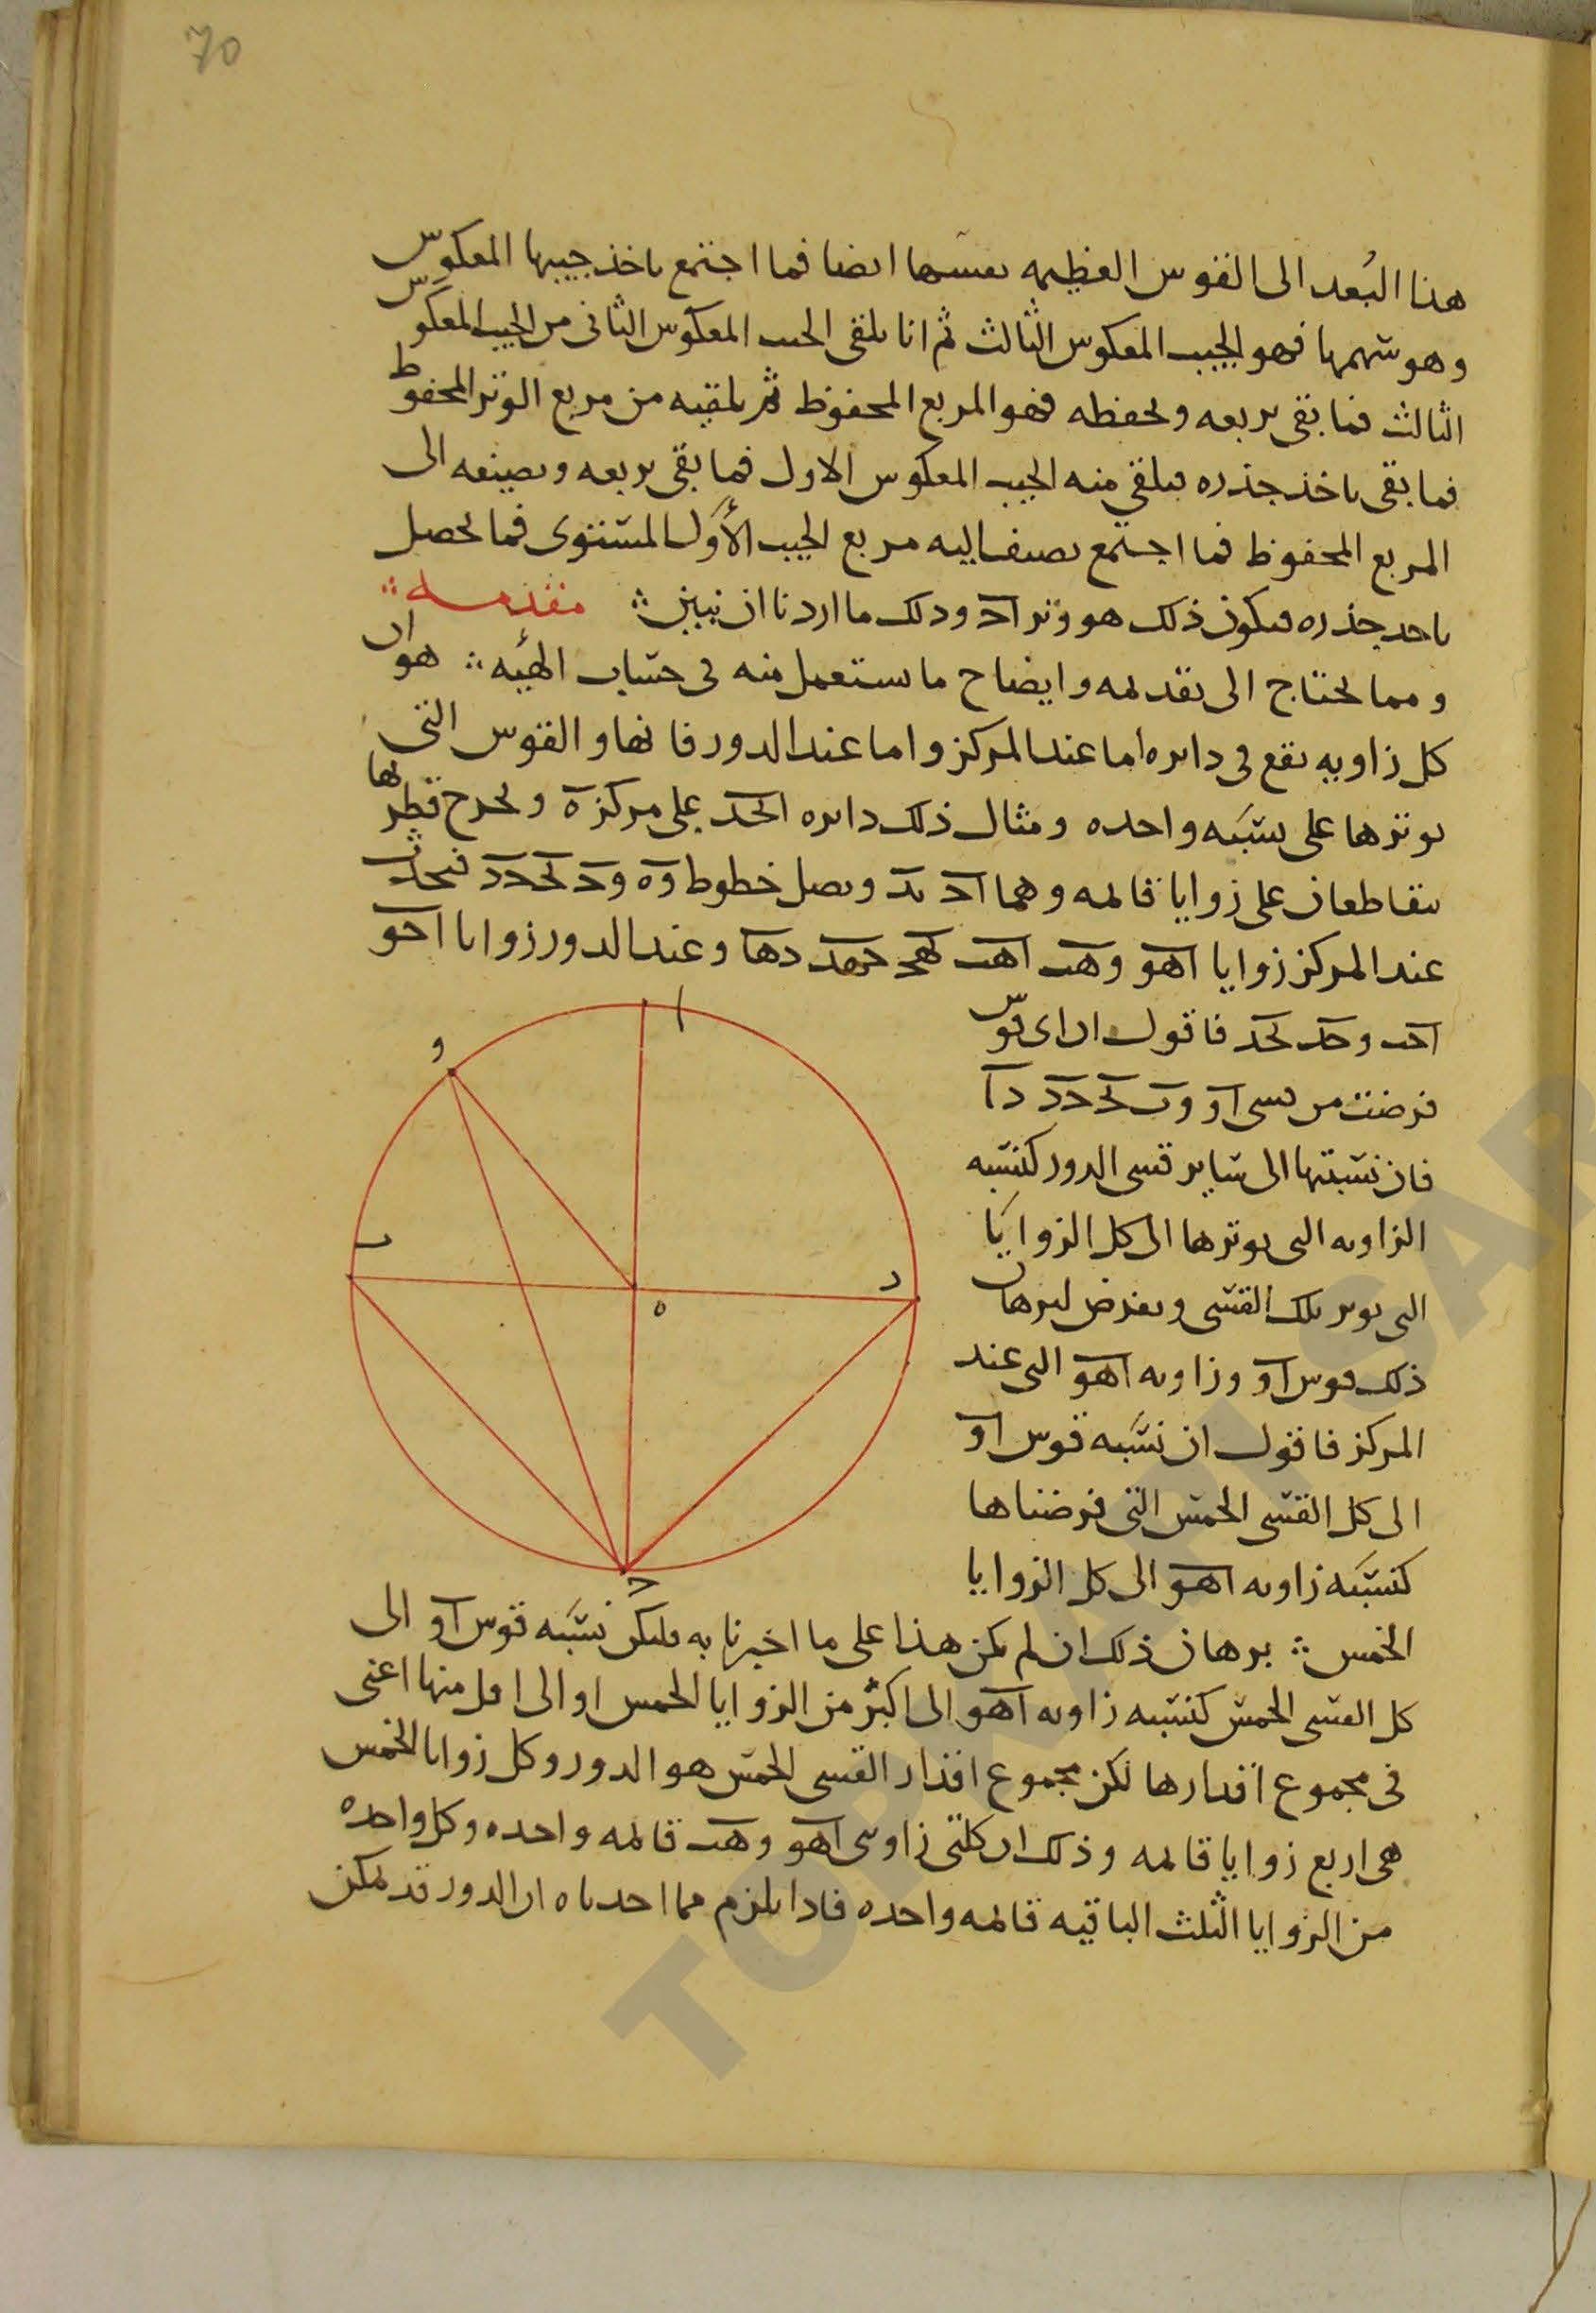 70
هذا البُعد الى القوس العظيمه نفسها ايضا فما اجتمع ناخذ جيبها المعكوس
وهو سهمها فهو الجيب المعكوس الثالث ثم انا نلقى الجيب المعكوس الثانى من الجيب المعكوس
الثالث فما بقى نربعه ونحفظه فهو المربع المحفوظ ثم نلقيه من مربع الوتر المحفوظ
فما بقى ناخذ جذره فنلقى منه الجيب المعكوس الاول فما بقى نربعه ونضيفه الى
المربع المحفوظ فما اجتمع نضف اليه مربع الجيب الأول المستوى فما يحصل
ناخذ جذره فيكون ذلك هو وتر اح وذلك ما اردنا ان نبين ∴ مقدمه ∴
ومما يحتاج الى تقدمه وايضاح ما يستعمل منه فى حساب الهيئه ∴ هو ان
كل زاويه تقع فى دايره اما عند المركز واما عند الدور فانها والقوس التى
يوترها على نسبه واحده ومثال ذلك دايره ابجد على مركز ه ونخرج قطريها
يتقاطعان على زوايا قايمه وهما اج بد ونصل خطوط وه وج بج جد فيحدث
عند المركز زوايا اهو وهب اهب بهج جهد دها وعند الدور زوايا اجو
اجب وجد بجد فاقول ان اى قوس
فرضت من قسى او وب بج جد دا
فان نسبتها الى ساير قسى الدور كنسبه
الزاويه التى يوترها الى كل الزوايا
التى يوتر تلك القسى ونفرض لبرهان
ذلك قوس او وزاويه اهو التى عند
المركز فاقول ان نسبه قوس او
الى كل القسى الخمس التى فرضناها
كنسبه زاويه اهو الى كل الزوايا
الخمس ∴ برهان ذلك ان لم يكن هذا على ما اخبرنا به فليكن نسبه قوس او الى
كل القسى الخمس كنسبه زاويه اهو الى اكبر من الزوايا الخمس او الى اقل منها اعنى
فى مجموع اقدارها لكن مجموع اقدار القسى الخمس هو الدور وكل زوايا الخمس
هى اربع زوايا قايمه وذلك ان كلتى زاويتى اهو وهب قايمه واحده وكل واحده
من الزوايا الثلث الباقيه قايمه واحده فاذا يلزم مما احدناه ان الدور قد يمكن
ا
و
ب
د
ه
ج
TOPKAPI SAR